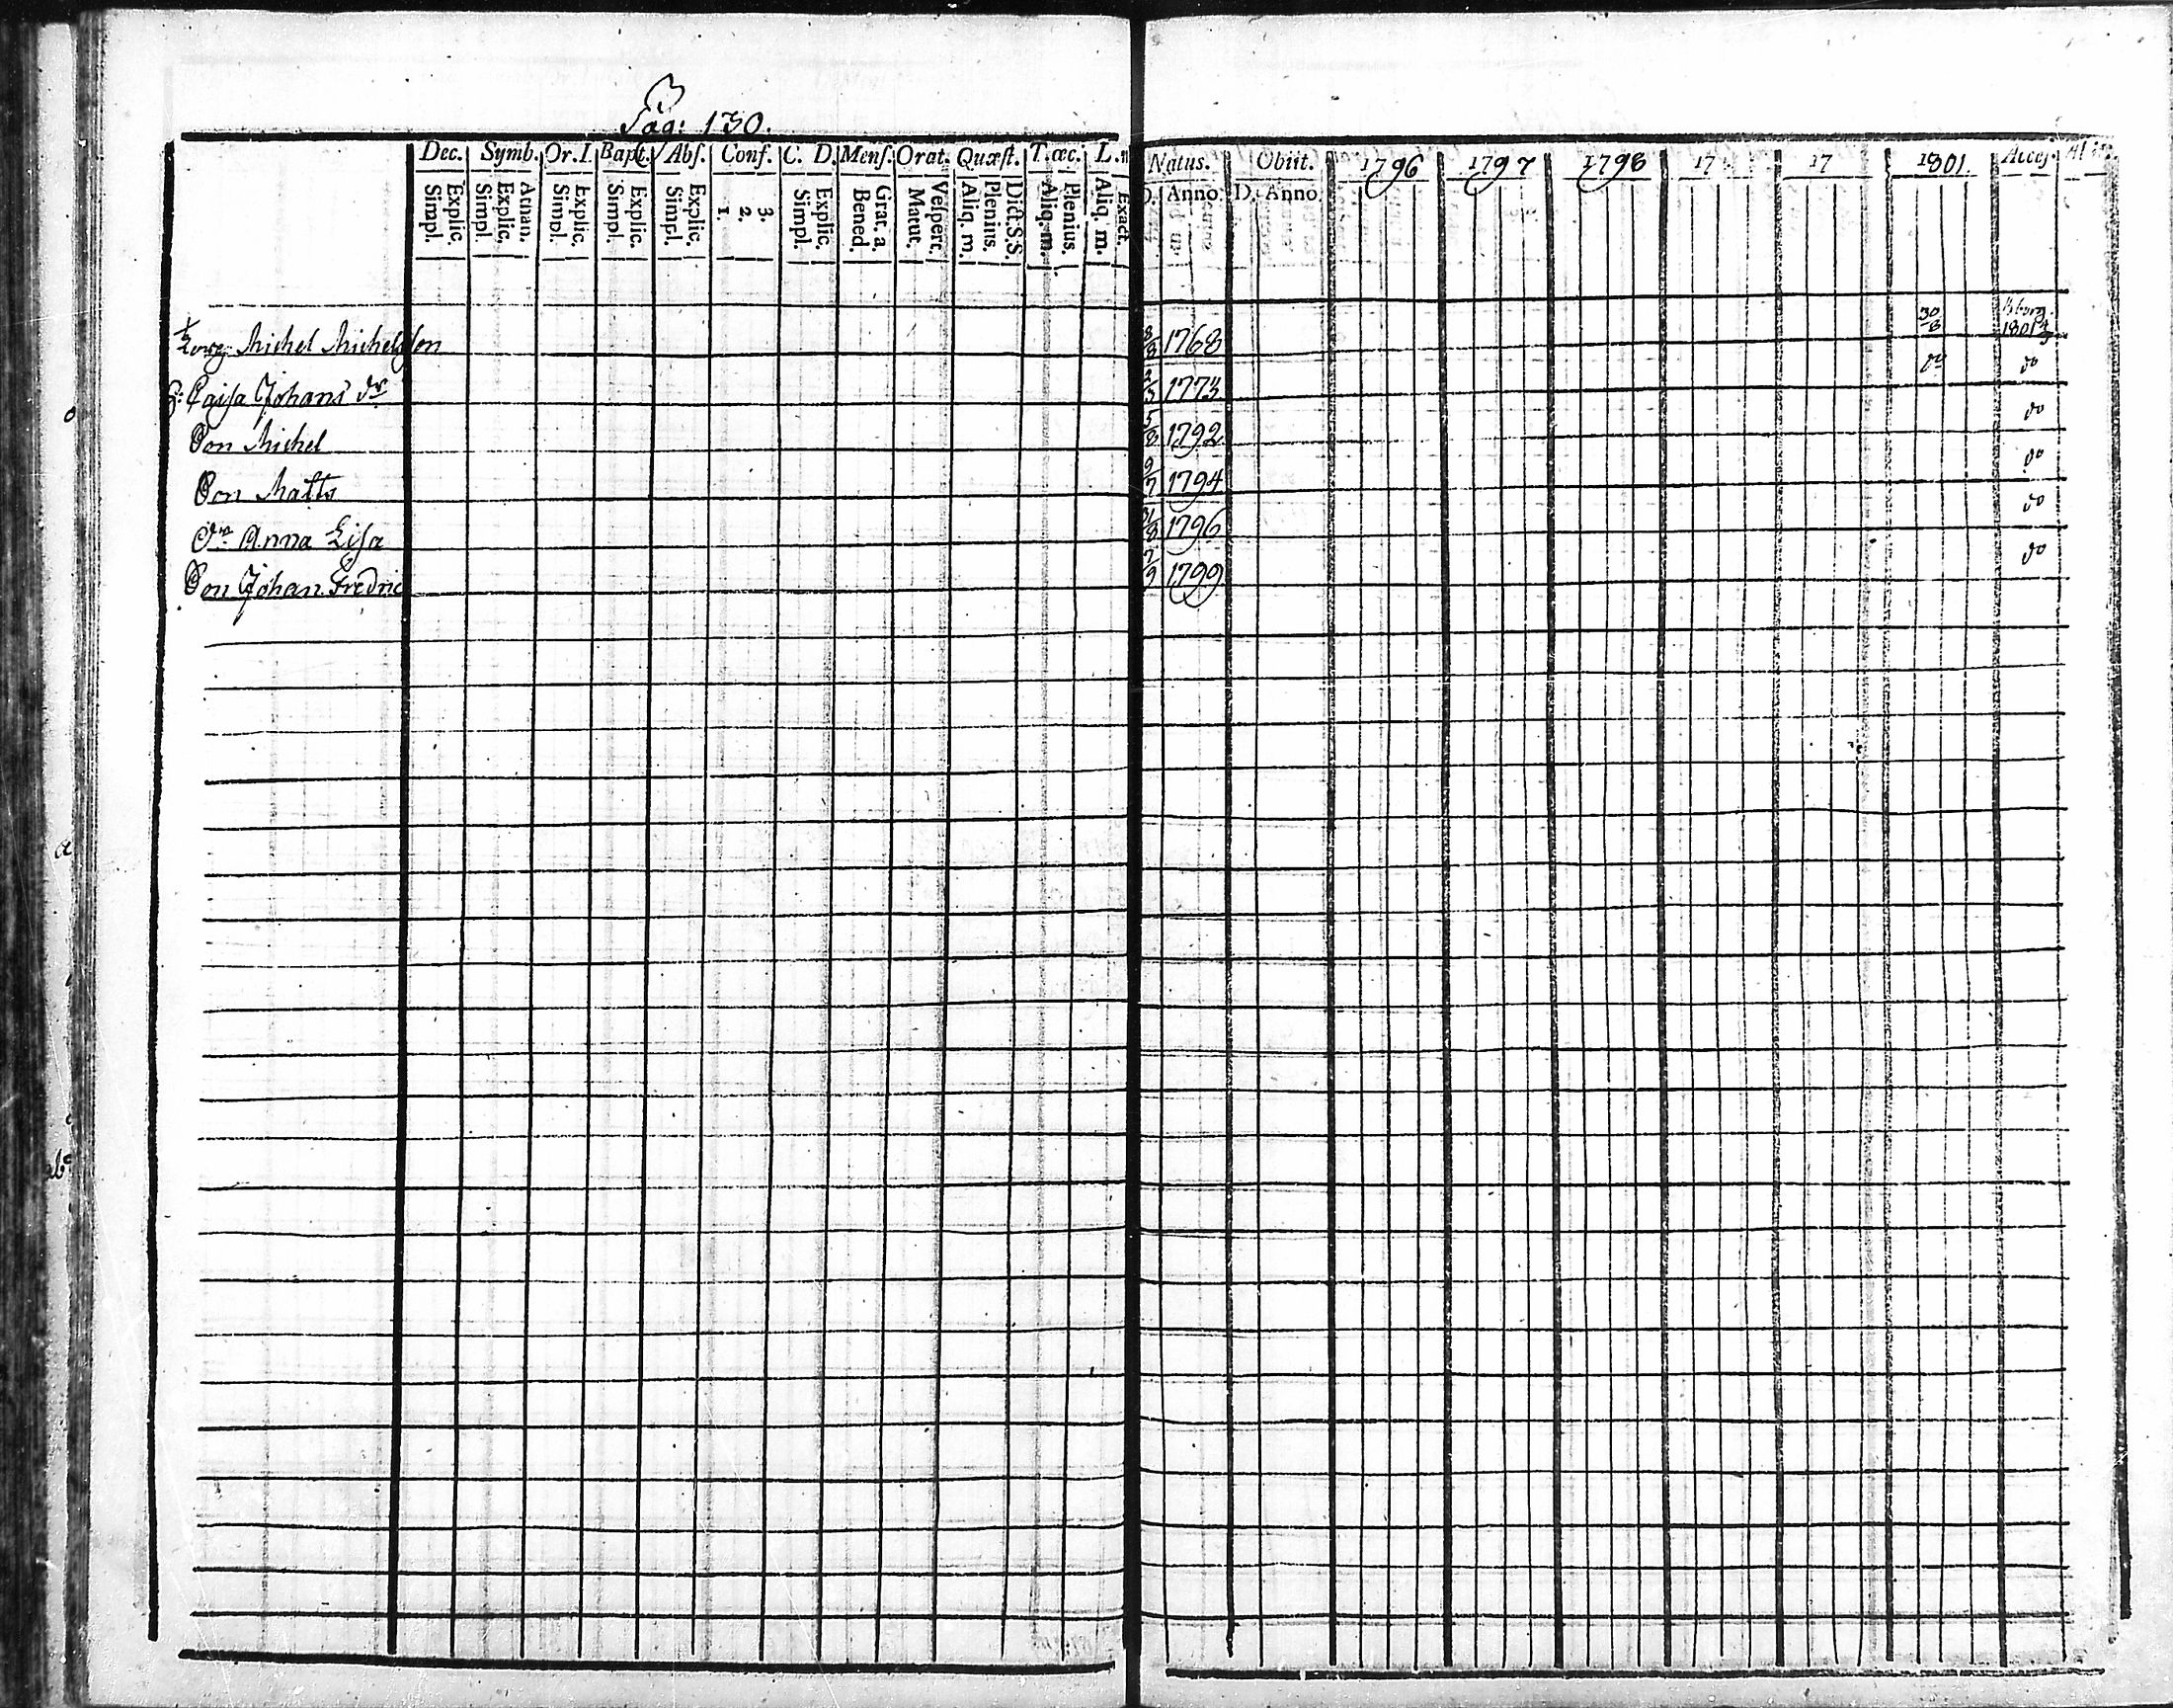 Pag: 130.
Dec. Symb. Or. I. Bapt. Abſ. Conf. C. D. Menſ. Orat. Quæſt. T. œc. L. Natus. Obiit. 1796 1797 1798 17 17 1801 Acceſ.
Simpl. Explic. Simpl. Explic. Atnan. Simpl. Explic. Simpl. Explic. Simpl. Explic. 1. 2. 3. Simpl. Explic. Bened. Grat. a. Matut. Veſpert. Aliq. m. Plenius. Dict. S.S. Aliq. m. Plenius. Aliq. m. Exact. D. Anno D. Anno
Michel Michelsson 8/8 1768 30/8 1801
Caisa Johans dr 1773 do do
Son Michel 5/8 1792 do
Son Matts 9/7 1794 do
Dr Anna Lisa 31/8 1796 do
Son Johan Fredric 7/9 1799 do